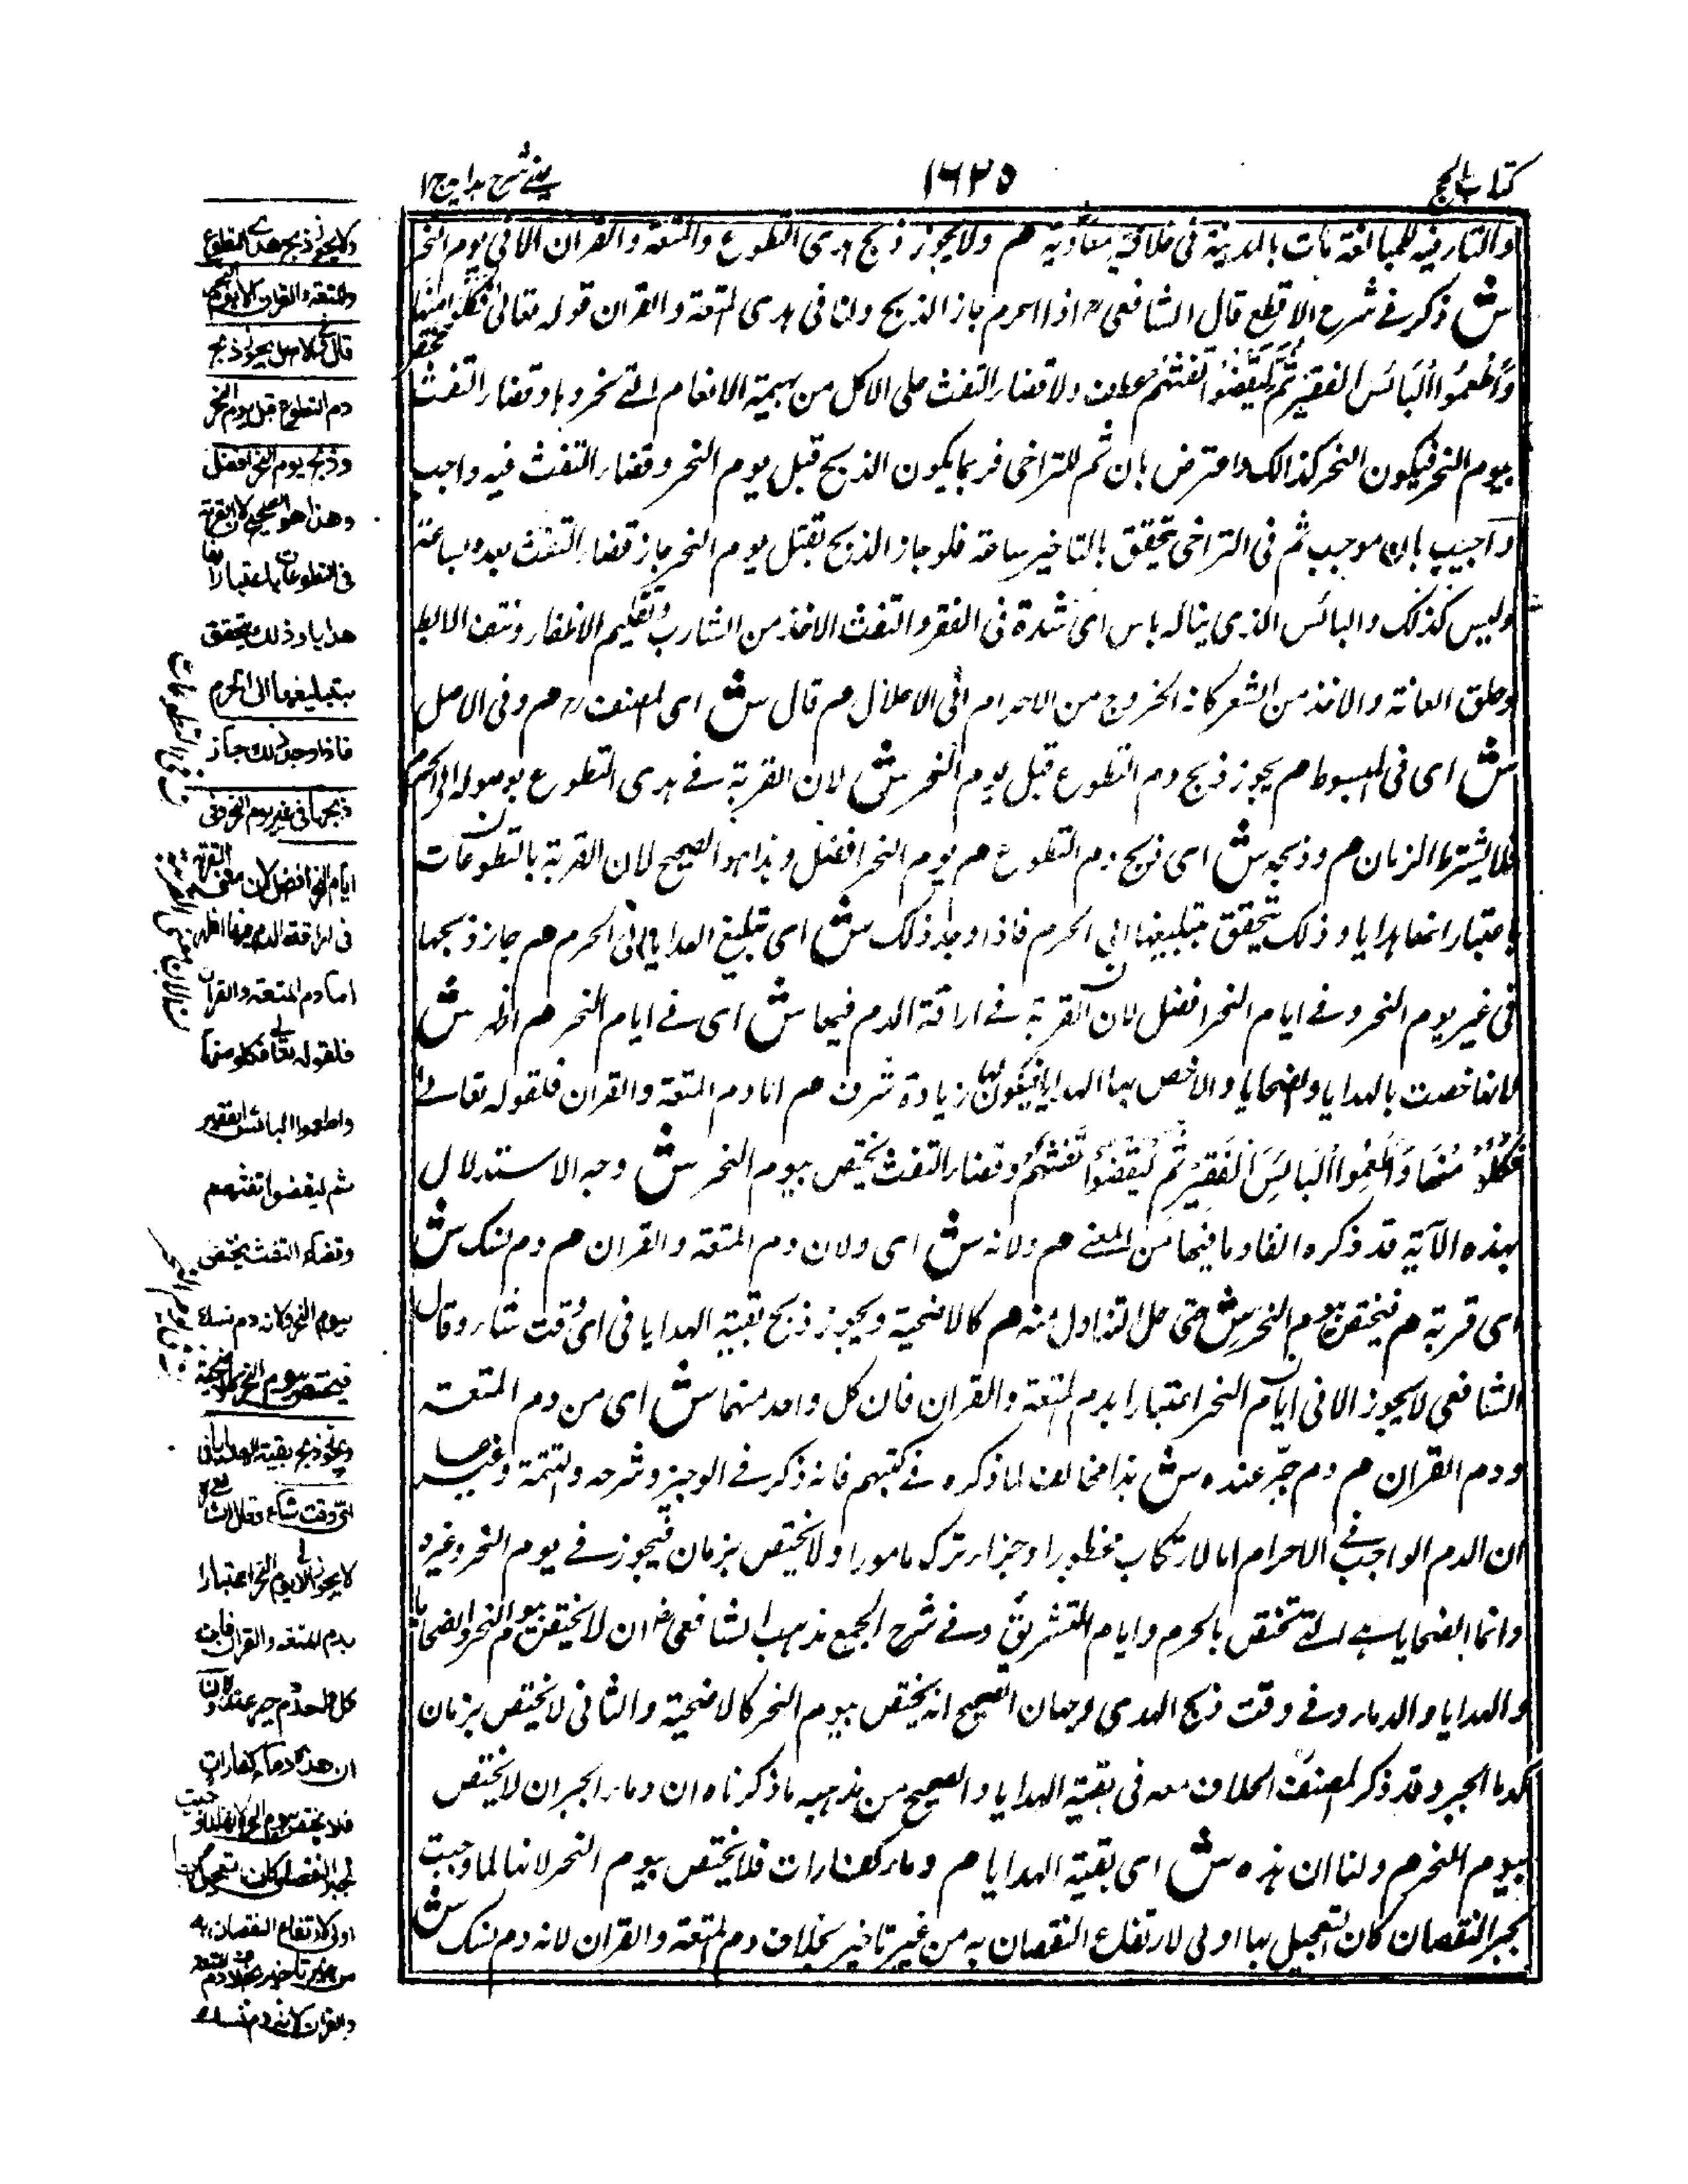 كتاب الحج
١٦٢٥
عينى شرح هدايه ج ١
والتاء فيه للمبالغة مات بالمدينة فى خلافة معاوية هم ولا يجوز ذبح هدى التطوع والمتعة والقران الا فى يوم النحر
ش ذكر فے شرح الاقطع قال الشافعى رح اذا احرم جاز الذبح ولنا فى هدى المتعة والقران قوله تعالى فَكُلُوْا مِنْهَا
وَاَطْعِمُوا الْبَائِسَ الفَقِيْرَ ثُمَّ لْيَقْضُوْا تَفَثَهُمْ عطف ولا قضاء التفث على الاكل من بهيمة الانعام التے نحروها وقضاء التفث مختص
بيوم النحر فيكون النحر كذالك واعترض بان ثم للتراخى فربما يكون الذبح قبل يوم النحر وقضاء التفث فيه واجب
واجيب بان موجب ثم فى التراخى تحقق بالتاخير ساعة فلو جاز الذبح قبل يوم النحر جاز قضاء التفث بعده بساعة
وليس كذلك والبائس الذى يناله باس اى شدة فى الفقر والتفث الاخذ من الشارب وتقليم الاظفار ونتف الابط
وحلق العانة والاخذ من الشعر كانه الخروج من الاحرام الى الاحلال هم قال ش اى المصنف رح هم وفى الاصل
ش اى فى المبسوط هم يجوز ذبح دم التطوع قبل يوم النحر ش لان القربة فے هدى التطوع بوصوله الى الحرم
فلا يشترط الزمان هم وذبحه ش اى ذبح دم التطوع هم يوم النحر افضل وهذا هو الصحيح لان القربة بالتطوعات
باعتبار انها هدايا وذلك يتحقق بتبليغها الى الحرم فاذا وجد ذلك ش اى تبليغ الهدايا الى الحرم هم جاز ذبحها
فى غير يوم النحر وفے ايام النحر افضل لان القربة فے اراقة الدم فيها ش اى فے ايام النحر هم اظهر ش
لانها خصت بالهدايا والضحايا والاخص بها الهدايا فيكون لها زيادة شرف هم اما دم المتعة والقران فلقوله تعالے
فَكُلُوْا مِنْهَا وَاَطْعِمُوا الْبَائِسَ الْفَقِيْرَ ثُمَّ لْيَقْضُوْا تَفَثَهُمْ وقضاء التفث يختص بيوم النحر ش وجه الاستدلال
بهذه الآية قد ذكره انفا وما فيها من المعنے هم ولانه ش اى ولان دم المتعة والقران هم دم نسك ش
اى قربة هم فيختص بيوم النحر ش حتى حل التناول منه هم كالاضحية ويجوز ذبح بقية الهدايا فى اى وقت شاء وقال
الشافعى لا يجوز الا فى ايام النحر اعتبارا بدم المتعة والقران فان كل واحد منهما ش اى من دم المتعة
ودم القران هم دم جبر عنده ش هذا مخالف لما ذكره فے كتبهم فانه ذكر فے الوجيز وشرحه والتتمة وغيرها
ان الدم الواجب فے الاحرام اما لارتكاب محظور او جزاء ترك مامور او لا يختص بزمان فيجوز فے يوم النحر وغيره
وانما الضحايا هے التے تختص بالحرم وايام التشريق وفے شرح الجمع مذهب الشافعى رض ان لا يختص بيوم النحر الضحايا
والهدايا والدماء وفے وقت ذبح الهدى وجهان الصحيح انه يختص بيوم النحر كالاضحية والثانى لا يختص بزمان
كدماء الجبر وقد ذكر المصنف الخلاف معه فى بقية الهدايا والصحيح من مذهبه ما ذكرناه ان دماء الجبران لا يختص
بيوم النحر هم ولنا ان هذه ش اى بقية الهدايا هم دماء كفارات فلا يختص بيوم النحر لانها لما وجبت
لجبر النقصان كان التعجيل بها اولى لارتفاع النقصان به من غير تاخير بخلاف دم المتعة والقران لانه دم نسك ش
ولا يجوز ذبح هدى التطوع
والمتعة والقران الا يوم النحر
قال فى الاصل يجوز ذبح
دم التطوع قبل يوم النحر
وذبحه يوم النحر افضل
وهذا هو الصحيح لان القربة
فى التطوعات باعتبار انها
هدايا وذلك يتحقق
بتبليغها الى الحرم
فاذا وجد ذلك جاز
ذبحها فى غير يوم النحر وفى
ايام النحر افضل لان معنى القربة
فى اراقة الدم فيها اظهر
اما دم المتعة والقران
فلقوله تعالى فكلوا منها
واطعموا البائس الفقير
ثم ليقضوا تفثهم
وقضاء التفث يختص
بيوم النحر ولانه دم نسك
فيختص بيوم النحر كالاضحية
ويجوز ذبح بقية الهدايا فى
اى وقت شاء وقال الشافعى
لا يجوز الا يوم النحر اعتبارا
بدم المتعة والقران فان
كل واحد دم جبر عنده ولنا
ان هذه دماء كفارات
فلا يختص بيوم النحر لانها لما وجبت
لجبر النقصان كان التعجيل بها
اولى لارتفاع النقصان به
من غير تاخير بخلاف دم المتعة
والقران لانه دم نسك